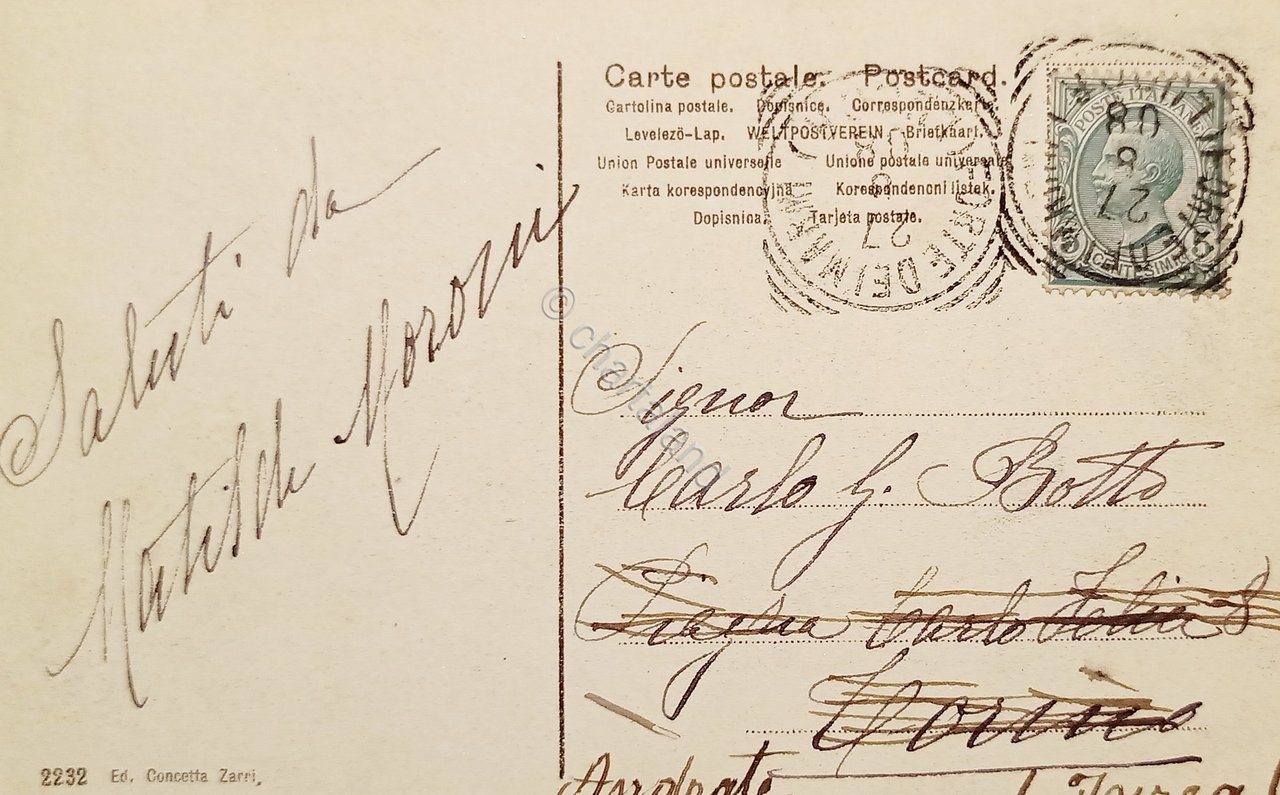 Carte postale. Postcard.
Cartolina postale. Dopisnice. Correspondenzkarte.
Levelezö-Lap. WELTPOSTVEREIN Briefkaart.
Union Postale universelle Unione postale universale
Karta korespondencyjna Korespondencni listek.
Dopisnica. Tarjeta postale.
FORTE DEI MARMI
27
8
08
POSTE ITALIANE
5 CENTESIMI 5
FORTE DEI MARMI
27
8
08
Saluti da
Matilde Morosini
© chartaland
Signor
Carlo G. Botto
Piazza Carlo Felice 8
Torino
Andrate
( Ivrea )
2232 Ed. Concetta Zarri.